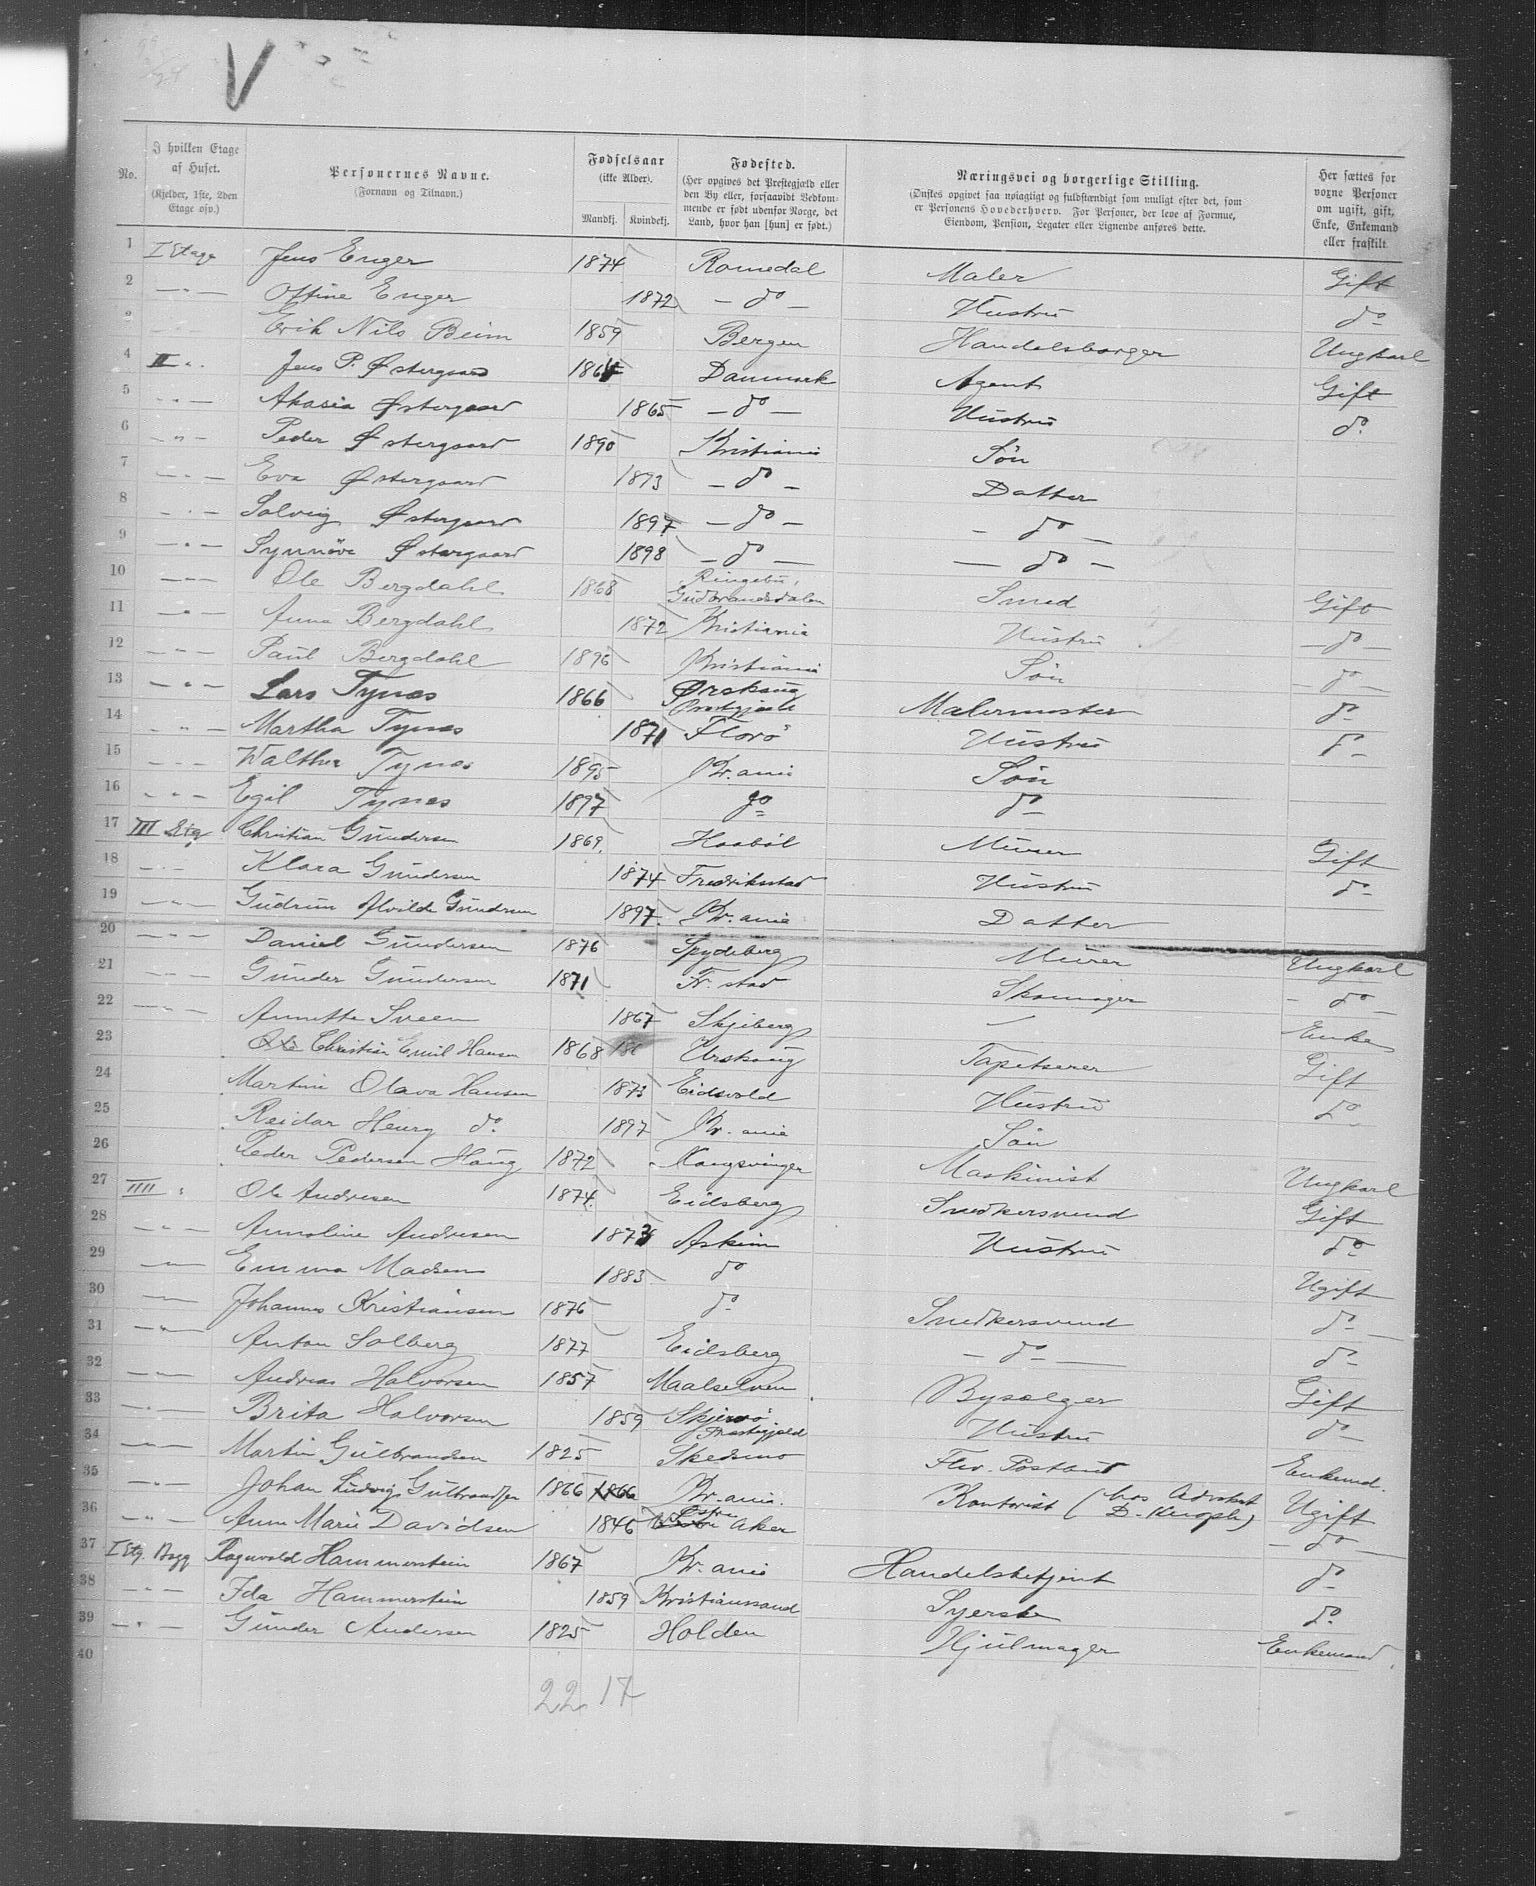 V
No.
I hvilken Etage af Huset.
(Kjelder, 1ste, 2den Etage osv.)
Personernes Navne.
(Fornavn og Tilnavn.)
Fødselsaar
(ikke Alder).
Mandkj. Kvindekj.
Fødested.
(Her opgives det Prestegjæld eller den By eller, forsaavidt Vedkommende er født udenfor Norge, det Land, hvor han [hun] er født.)
Næringsvei og borgerlige Stilling.
(Ønskes opgivet saa nøiagtigt og fuldstændigt som muligt efter det, som er Personens Hovederhverv. For Personer, der leve af Formue, Eiendom, Pension, Legater eller Lignende anføres dette.
Her sættes for voxne Personer om ugift, gift, Enke, Enkemand eller fraskilt.
1 I Etage Jens Enger 1874 Romedal Maler Gift
2 — " — Oftine Enger 1872 — do — Hustru do
3 — " — Erik Nils Beim 1859 Bergen Handelsborger Ungkarl
4 II " . Jens P. Østergaard 1864 Danmark Agent Gift
5 — " — Akasia Østergaard 1865 — do — Hustru do.
6 — " — Peder Østergaard 1890 Kristiania Søn
7 — " — Eva Østergaard 1893 — do — Datter
8 — " — Solveig Østergaard 1897 — do — — do —
9 — " — Synnöve Østergaard 1898 — do — — do —
10 — " — Ole Bergdahl 1868 Ringebu, Gudbrandsdalen Smed Gift
11 — " — Anna Bergdahl 1872 Kristiania Hustru — do —
12 — " — Paul Bergdahl 1896 Kristiania Søn — do —
13 — " — Lars Tynæs 1866 Ørskoug Prestgjeld Malermester do
14 — " — Martha Tynæs 1871 Florö Hustru do
15 — " — Walther Tynæs 1895 Kr.ania Søn
16 — " — Egil Tynæs 1897 do do
17 III Etg Christian Gundersen 1869. Haabøl Murer Gift
18 — " — Klara Gundersen 1874 Fredrikstad Hustru do
19 — " — Gudrun Alvilde Gundersen 1897. Kr.ania Datter
20 — " — Daniel Gundersen 1876 Spydeberg Murer Ungkarl
21 — " — Gunder Gundersen 1871 Fr.stad Skomager — do —
22 — " — Annette Sveen 1867 Skjeberg — Enke
23 Christian Emil Hansen 1868 Urskoug Tapetserer Gift
24 Martine Olava Hansen 1873 Eidsvold Hustru do
25 Reidar Henry do. 1897 Kr.ania Søn
26 Peder Pedersen Haug 1872 Kongsvinger Maskinist Ungkarl
27 IIII " Ole Andresen 1874. Eidsberg Snedkersvend Gift
28 — " — Annoline Andresen 1873 Askim Hustru do
29 — " — Emma Madsen 1883 do Ugift
30 — " — Johannes Kristiansen 1876 do Snedkersvend do
31 — " — Anton Solberg 1877 Eidsberg — do — do
32 — " — Andreas Halvorsen 1857 Maalselven Bysælger Gift
33 — " — Brita Halvorsen 1859 Skjervö Prestegjeld Hustru do
34 — " — Martin Gulbrandsen 1825 Skedsmo Postbud Enkemd.
35 — " — Johan Ludvig Gulbrandsen 1866 1866 Kr.ania. Kontorist (hos Advokat Ugift
36 — " — Anne Marie Davidsen 1846 Østre Aker — do —
37 I Etg. Bagg Ragnvald Hammerstein 1867 Kr.ania Handelsbetjent do
38 — " — Ida Hammerstein 1859 Kristianssand Syerske do
39 — " — Gunder Andersen 1825 Holden Hjulmager Enkemand.
40
22 17